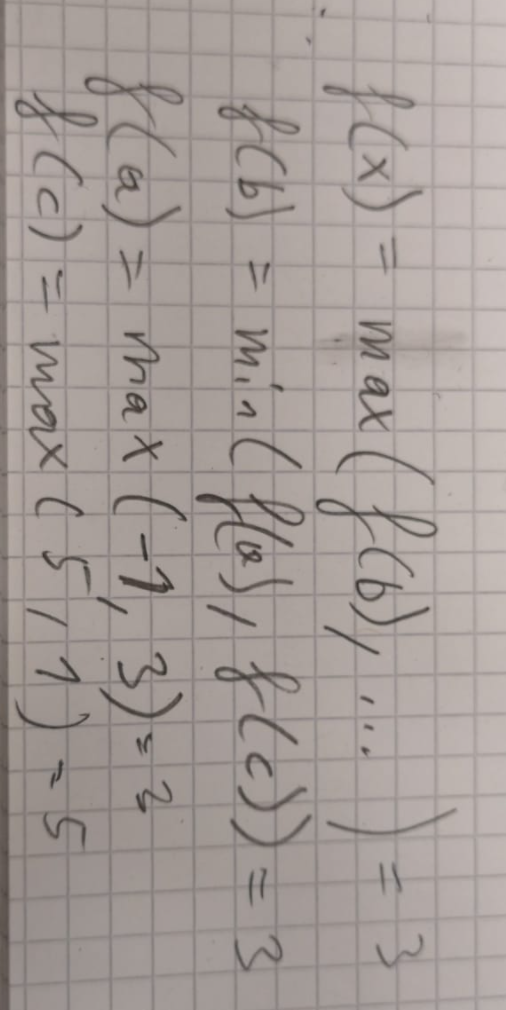 f(x) = max(f(b), ...) = 3
f(b) = min(f(a), f(c)) = 3
f(a) = max(-1, 3) = 3
f(c) = max(5, 1) = 5